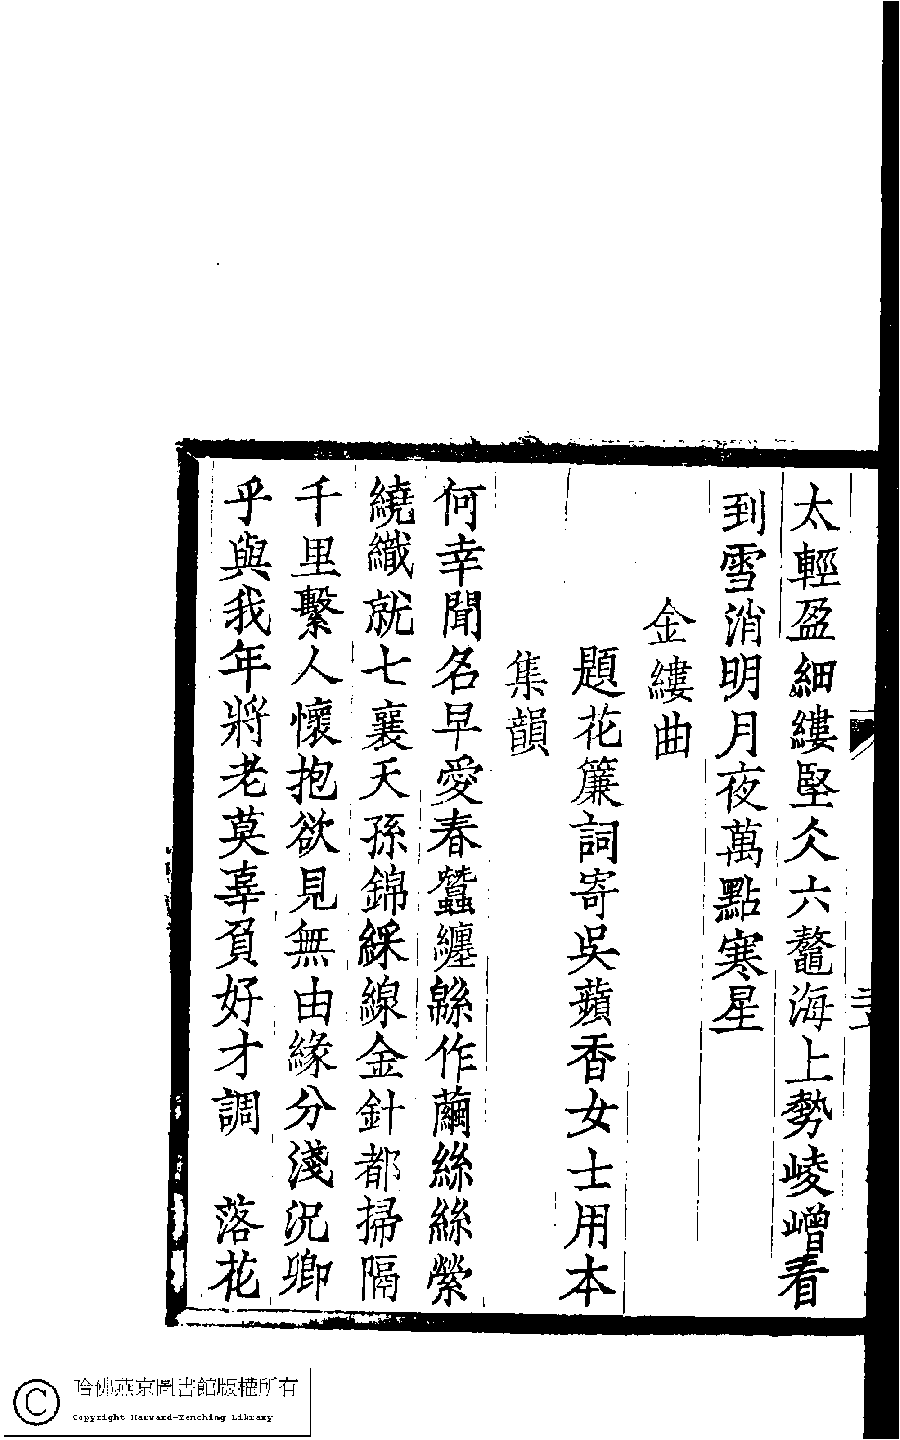 太輕盈細縷堅仌六鼇海上勢崚嶒看
到雪消明月夜萬點寒星
金縷曲
題花簾詞寄吳蘋香女士用本
集韻
何幸聞名早愛春蠶纏緜作繭絲絲縈
繞織就七襄天孫錦綵線金針都掃隔
千里繫人懷抱欲見無由緣分淺況卿
乎與我年將老莫辜負好才調　落花
哈佛燕京圖書館版權所有
Copyright Harvard-Yenching Library